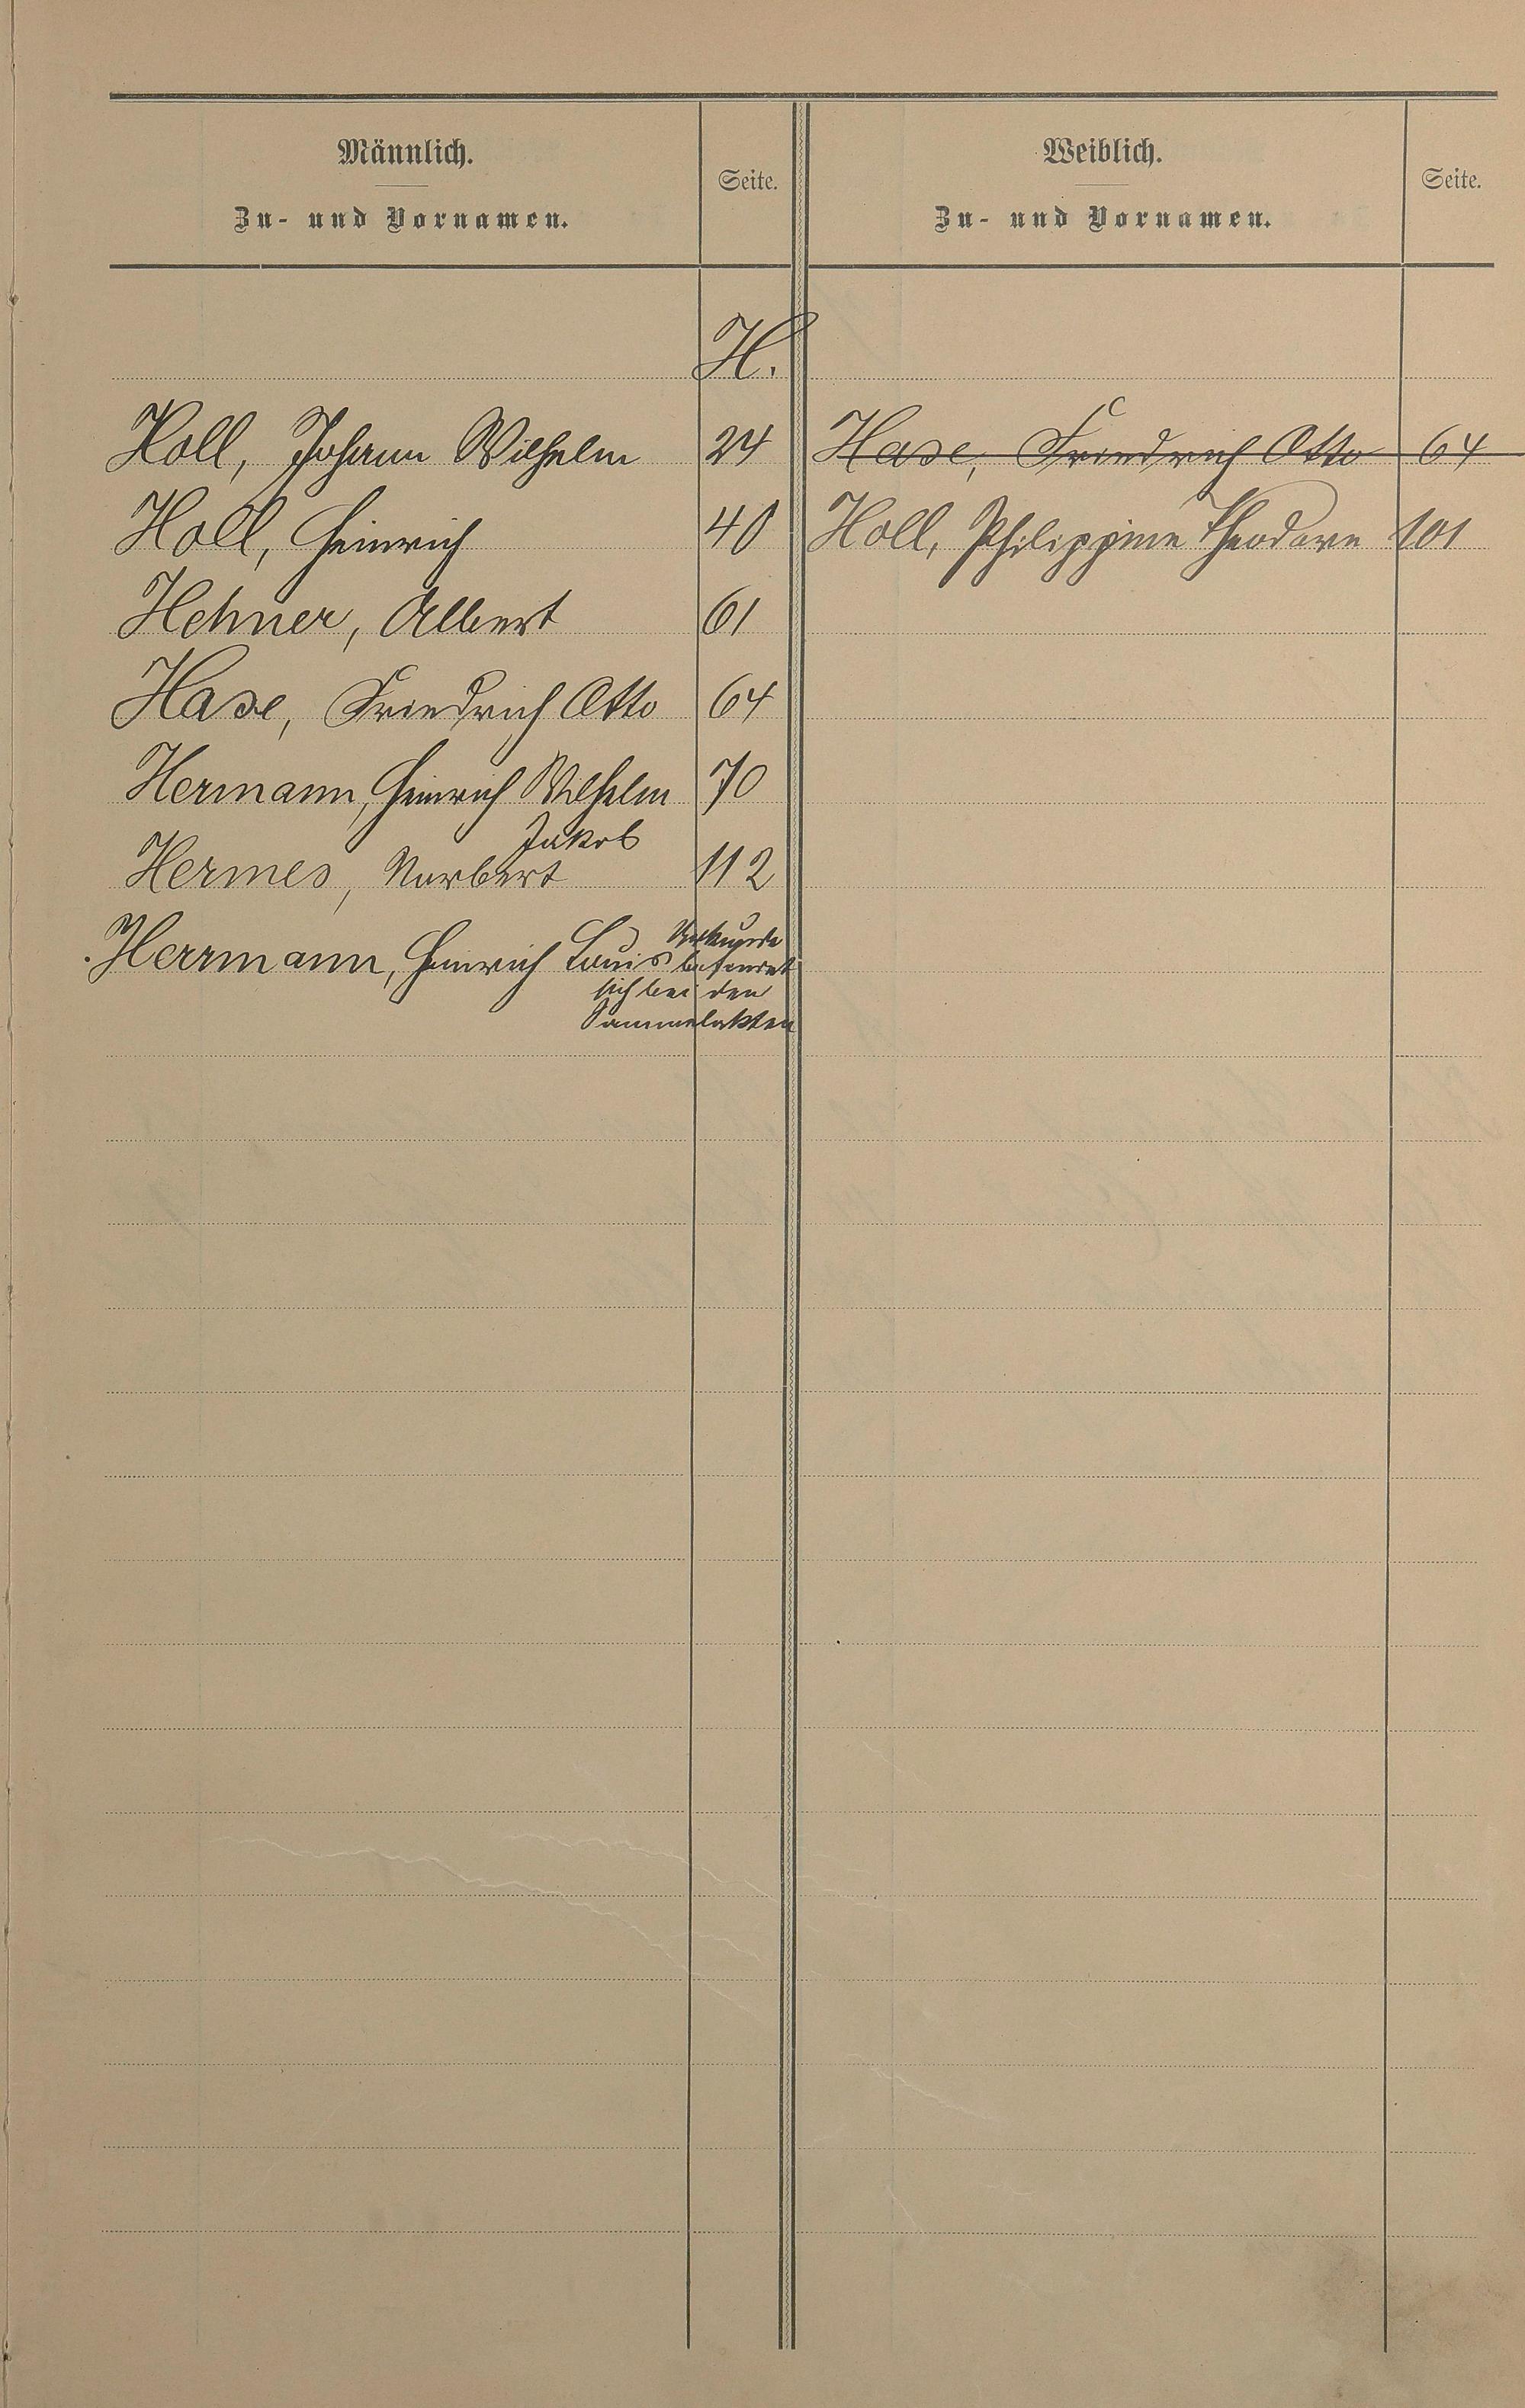 Männlich.
Zu- und Vornamen.
Seite.
Weiblich.
Zu- und Vornamen.
Seite.
H.
Holl, Johann Wilhelm 24
Hase, Friedrich Otto 64
Holl, Heinrich 40
Holl, Philippine Theodore 101
Hehner, Albert 61
Hase, Friedrich Otto 64
Hermann, Heinrich Wilhelm 70
Jakob
Hermes, Norbert 112
Herrmann, Heinrich Louis Urkunde
befindet
sich bei den
Sammelakten